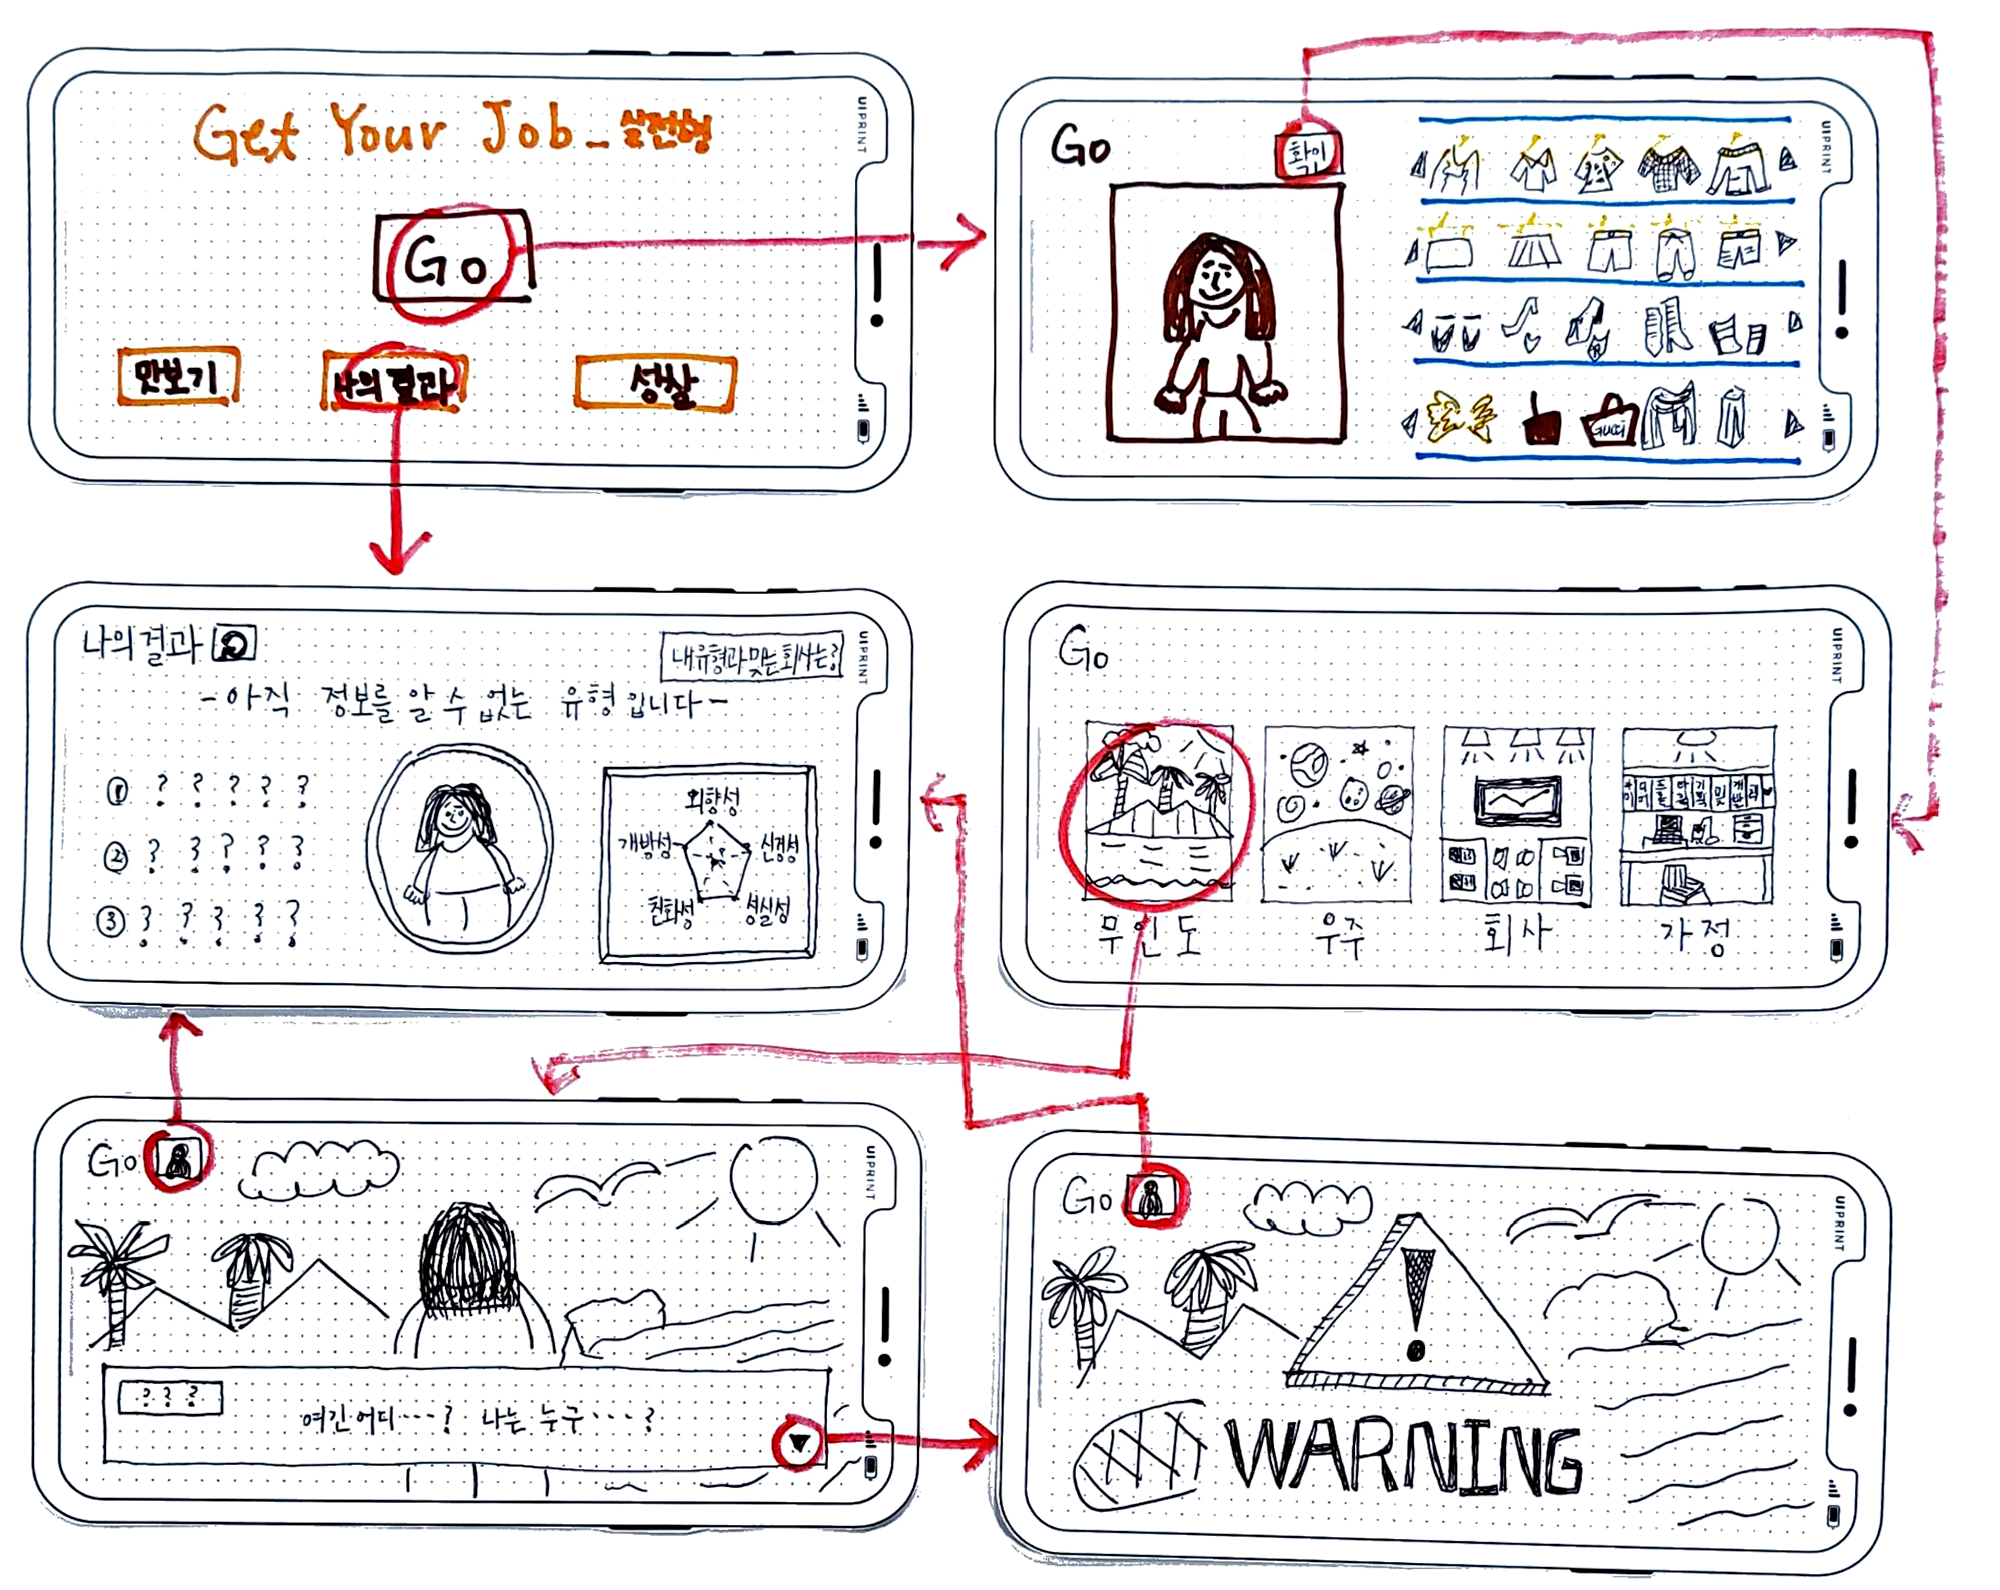 Get Your Job_실전형
Go
맛보기
나의 결과
성찰
UIPRINT
Go
확인
Gucci
UIPRINT
나의 결과
내 유형과 맞는 회사는?
-아직 정보를 알 수 없는 유형입니다-
① ? ? ? ? ?
② ? ? ? ? ?
③ ? ? ? ? ?
외향성
개방성
신경성
친화성
성실성
UIPRINT
Go
무인도
우주
회사
가정
UIPRINT
Go
? ? ?
여긴 어디…? 나는 누구…?
UIPRINT
Go
WARNING
UIPRINT